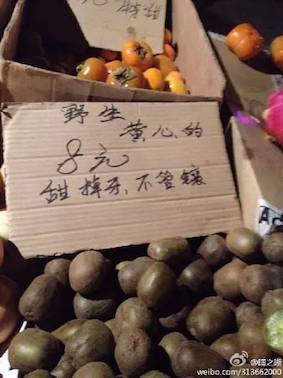 特甜
野生
黄心的
8元
甜掉牙,不管镶
@喵之晰
weibo.com/313662000